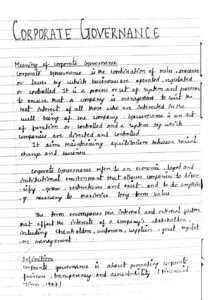 CORPORATE GOVERNANCE
Meaning of Corporate Governance
Corporate Governance is the combination of rules, processes
or laws by which businesses are operated, regulated
or controlled. It is a process or set of systems and processes
to ensure that a company is managed to suit the
best interest of all those who are interested in the
well being of the company. Governance is an act
of direction or controlled and a system by which
companies are directed and controlled.
It aims maintaining equilibrium between social
change and business
Corporate Governance refers to an economic, legal and
institutional environment that allows companies to diver
sify, grow, restructure and exist and to do
necessary to maximize long term value.
The term encompasses the internal and external factors
that affect the interests of a company's stakeholders,
including shareholders, customers, suppliers, govt regulat
ors management
Definitions
Corporate governance is about promoting corporate
fairness, transparency and accountability (Financial
Times,